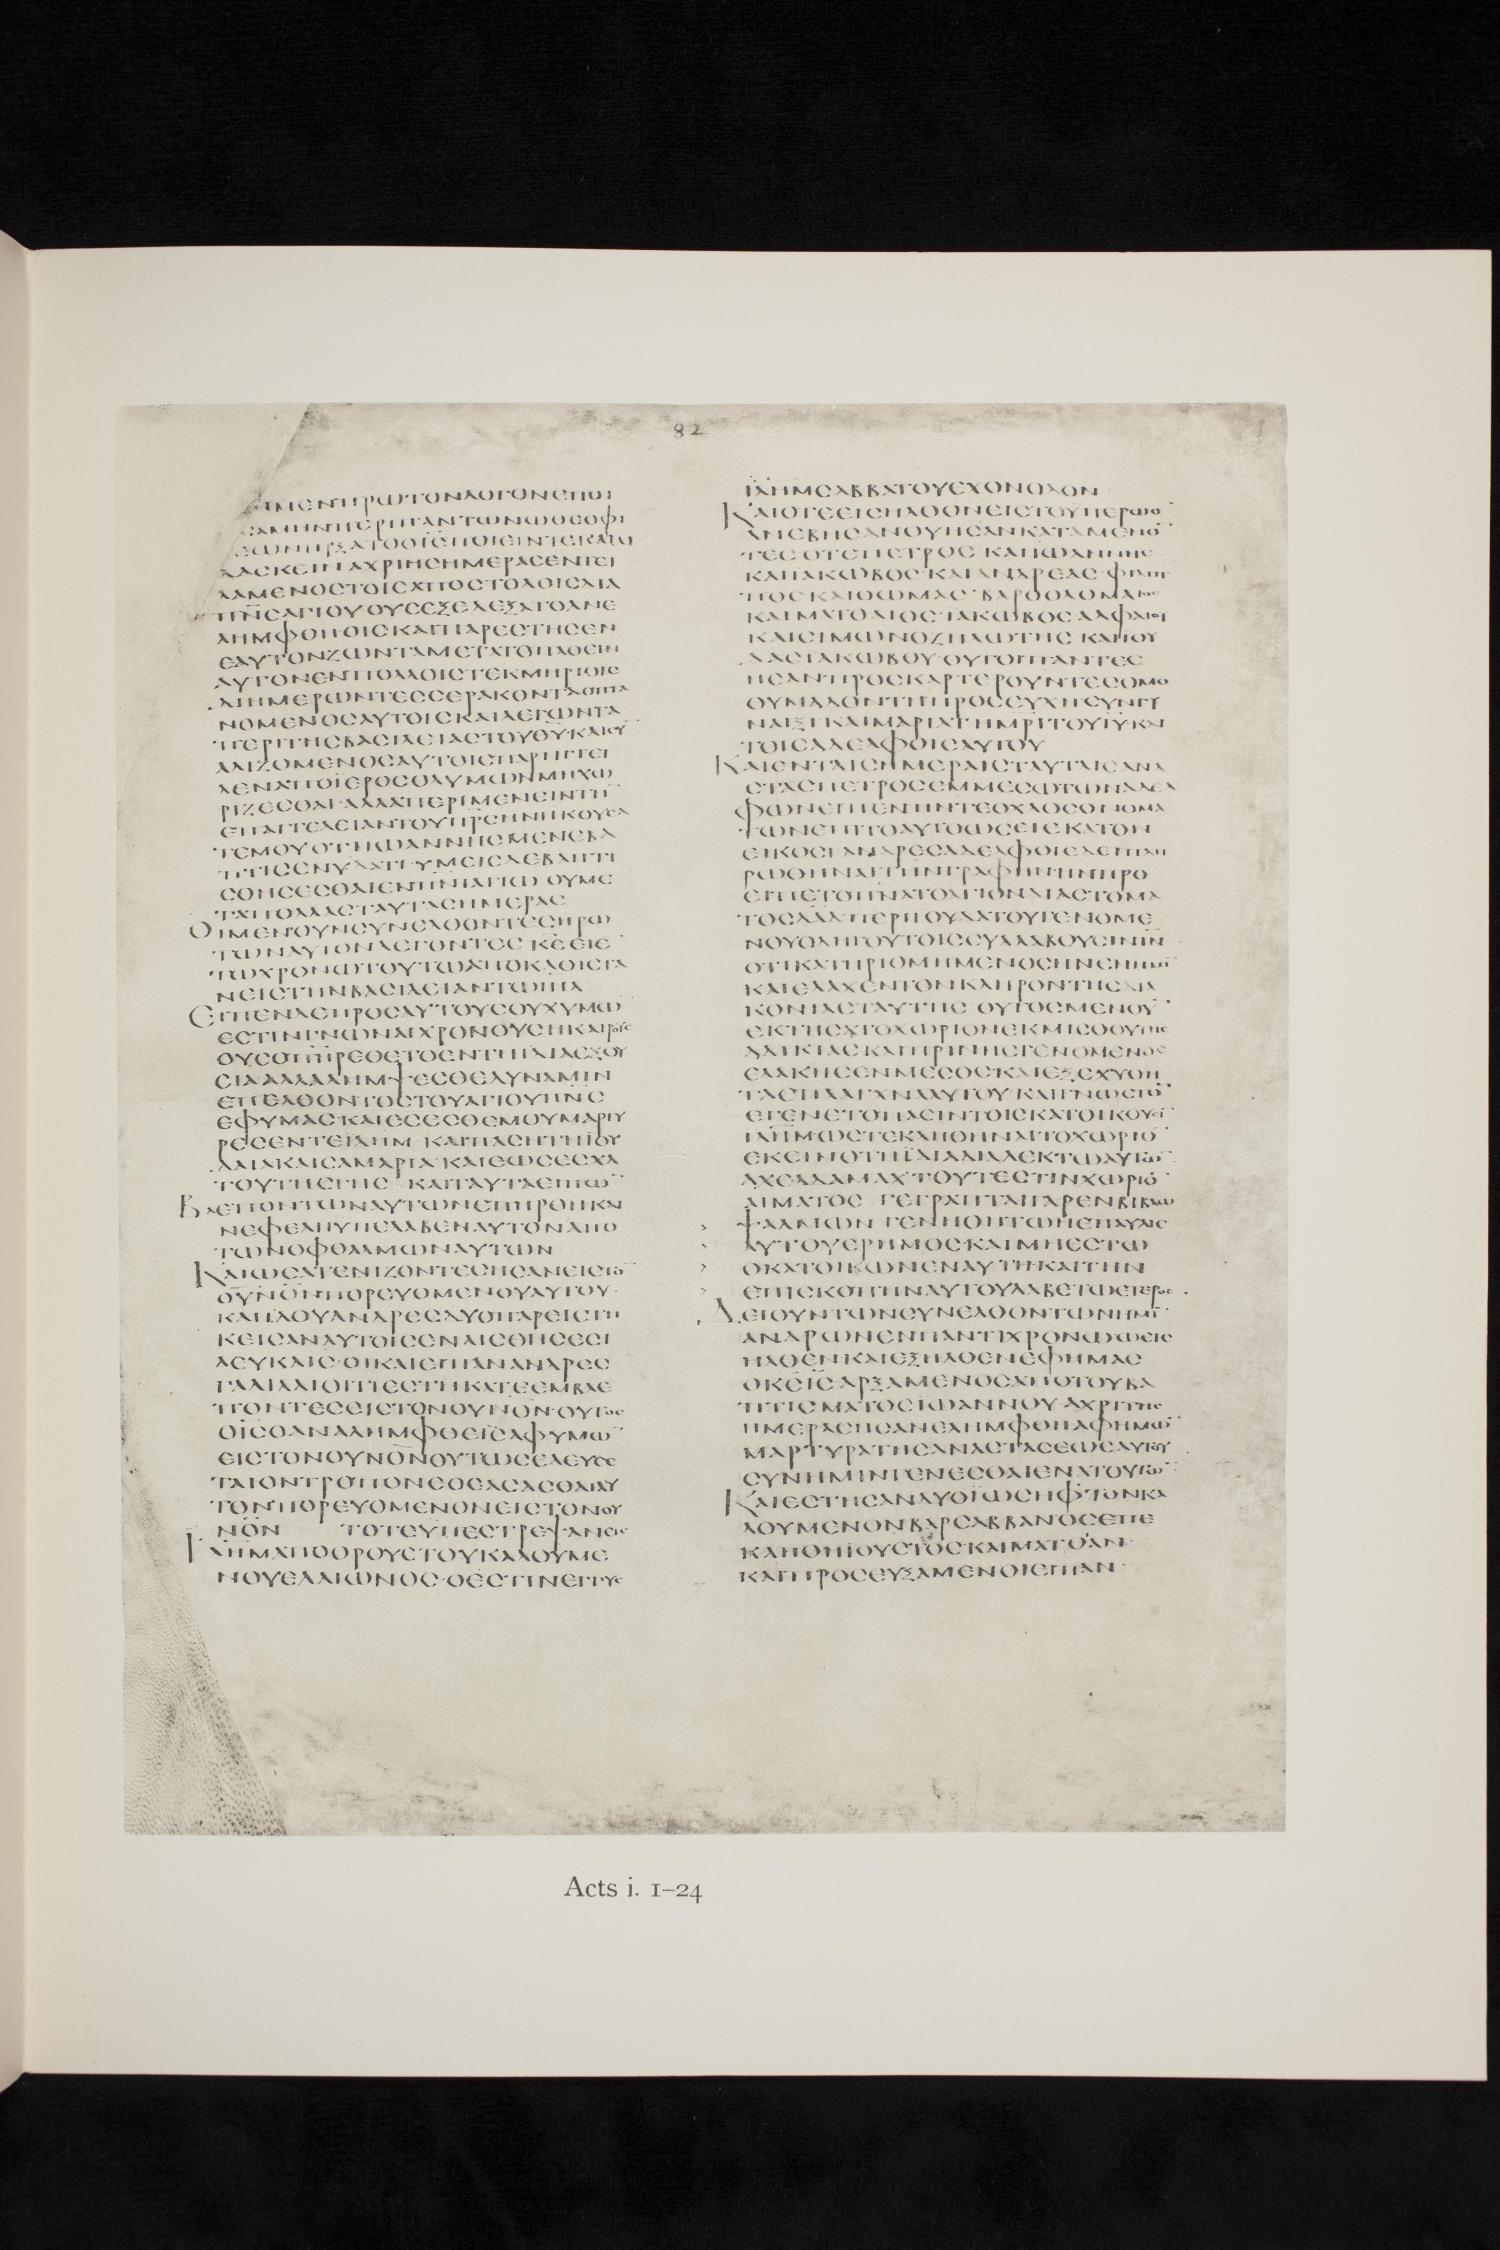 82
ΜΕΝΠΡΩΤΟΝΛΟΓΟΝΕΠΟΙ
ΣΑΜΗΝΠΕΡΙΠΑΝΤΩΝΩΘΕΟΦΙ
ΛΑΣΚΕΙΝΑΧΡΙΗΣΗΜΕΡΑΣΕΝΤΕΙ
ΛΑΜΕΝΟΣΤΟΙΣΑΠΟΣΤΟΛΟΙΣΔΙΑ
Π̅Ν̅Σ̅ΑΓΙΟΥΟΥΣΕΞΕΛΕΞΑΤΟΑΝΕ
ΛΗΜΦΘΗΟΙΣΚΑΙΠΑΡΕΣΤΗΣΕΝ
ΕΑΥΤΟΝΖΩΝΤΑΜΕΤΑΤΟΠΑΘΕΙΝ
ΑΥΤΟΝΕΝΠΟΛΛΟΙΣΤΕΚΜΗΡΙΟΙΣ
ΔΙΗΜΕΡΩΝΤΕΣΣΕΡΑΚΟΝΤΑΟΠΤΑ
ΝΟΜΕΝΟΣΑΥΤΟΙΣΚΑΙΛΕΓΩΝΤΑ
ΠΕΡΙΤΗΣΒΑΣΙΛΕΙΑΣΤΟΥΘ̅Υ̅ΚΑΙΣΥ
ΑΛΙΖΟΜΕΝΟΣΑΥΤΟΙΣΠΑΡΗΓΓΕΙ
ΛΕΝΑΠΟΪΕΡΟΣΟΛΥΜΩΝΜΗΧΩ
ΡΙΖΕΣΘΑΙ·ΑΛΛΑΠΕΡΙΜΕΝΕΙΝΤΗ̅
ΕΠΑΓΓΕΛΕΙΑΝΤΟΥΠ̅Ρ̅Σ̅ΗΝΗΚΟΥΣΑ
ΤΕΜΟΥΟΤΙΙΩΑΝΝΗΣΜΕΝΕΒΑ
ΠΤΙΣΕΝΥΔΑΤΙ·ΥΜΕΙΣΔΕΒΑΠΤΙ
ΣΘΗΣΕΣΘΑΙΕΝΠ̅Ν̅Ι̅ΑΓΙΩ ΟΥΜΕ
ΤΑΠΟΛΛΑΣΤΑΥΤΑΣΗΜΕΡΑΣ
ΟΙΜΕΝΟΥΝΣΥΝΕΛΘΟΝΤΕΣΗΡΩ
ΤΩΝΑΥΤΟΝΛΕΓΟΝΤΕΣ Κ̅Ε̅ΕΙΕ̅
ΤΩΧΡΟΝΩΤΟΥΤΩΑΠΟΚΑΘΙΣΤΑ
ΝΕΙΣΤΗΝΒΑΣΙΛΕΙΑΝΤΩΙ̅Η̅Λ̅
ΕΙΠΕΝΔΕΠΡΟΣΑΥΤΟΥΣΟΥΧΥΜΩ̅
ΕΣΤΙΝΓΝΩΝΑΙΧΡΟΝΟΥΣΗΚΑΙΡΟΥΣ
ΟΥΣΟΠ̅Η̅Ρ̅ΕΘΕΤΟΕΝΤΗΙΔΙΑΕΞΟΥ
ΣΙΑΑΛΛΑΛΗΜΨΕΣΘΕΔΥΝΑΜΙΝ
ΕΠΕΛΘΟΝΤΟΣΤΟΥΑΓΙΟΥΠ̅Ν̅Σ̅
ΕΦΥΜΑΣΚΑΙΕΣΕΣΘΕΜΟΥΜΑΡΤΥ
ΡΕΣΕΝΤΕΙ̅Λ̅Η̅Μ̅·ΚΑΙΠΑΣΗΤΗΙΟΥ
ΔΑΙΑΚΑΙΣΑΜΑΡΙΑ·ΚΑΙΕΩΣΕΣΧΑ
ΤΟΥΤΗΣΓΗΣ· ΚΑΙΤΑΥΤΑΕΙΠΩ̅
ΒΛΕΠΟΝΤΩΝΑΥΤΩΝΕΠΗΡΘΗΚΑΙ
ΝΕΦΕΛΗΥΠΕΛΑΒΕΝΑΥΤΟΝΑΠΟ
ΤΩΝΟΦΘΑΛΜΩΝΑΥΤΩΝ
ΚΑΙΩΣΑΤΕΝΙΖΟΝΤΕΣΗΣΑΝΕΙΣΤΟ̅
ΟΥ̅Ν̅Ο̅Ν̅ΠΟΡΕΥΟΜΕΝΟΥΑΥΤΟΥ·
ΚΑΙΙΔΟΥΑΝΔΡΕΣΔΥΟΠΑΡΕΙΣΤΗ
ΚΕΙΣΑΝΑΥΤΟΙΣΕΝΑΙΣΘΗΣΕΣΙ
ΛΕΥΚΑΙΣ·ΟΙΚΑΙΕΙΠΑΝΑΝΔΡΕΣ
ΓΑΛΙΛΑΙΟΙΤΙΕΣΤΗΚΑΤΕΕΜΒΛΕ
ΠΟΝΤΕΣΕΙΣΤΟΝΟΥΝΟΝ·ΟΥΤΟΣ
ΟΙ̅Σ̅ΟΑΝΑΛΗΜΦΘΕΙΣΑΦΥΜΩ̅
ΕΙΣΤΟΝΟΥΝΟ̅Ν̅ΟΥΤΩΣΕΛΕΥΣΕ
ΤΑΙΟΝΤΡΟΠΟΝΕΘΕΑΣΑΣΘΑΙΑΥ
ΤΟΝΠΟΡΕΥΟΜΕΝΟΝΕΙΣΤΟΝΟΥ
ΝΟ̅Ν̅ ΤΟΤΕΥΠΕΣΤΡΕΨΑΝΕΙΣ
Ι̅Λ̅Η̅Μ̅ΑΠΟΟΡΟΥΣΤΟΥΚΑΛΟΥΜΕ
ΝΟΥΕΛΑΙΩΝΟΣ·ΟΕΣΤΙΝΕΓΓΥΣ
Ι̅Λ̅Η̅Μ̅ΣΑΒΒΑΤΟΥΕΧΟΝΟΔΟΝ
ΚΑΙΟΤΕΕΙΣΗΛΘΟΝΕΙΣΤΟΥΠΕΡΩΟ̅
ΑΝΕΒΗΣΑΝΟΥΗΣΑΝΚΑΤΑΜΕΝΟ̅
ΤΕΣΟΤΕΠΕΤΡΟΣ ΚΑΙΙΩΑΝΝΗΣ
ΚΑΙΙΑΚΩΒΟΣ·ΚΑΙΑΝΔΡΕΑΣ·ΦΙΛΙΠ
ΠΟΣΚΑΙΘΩΜΑΣ·ΒΑΡΘΟΛΟΜΑΙΟΣ
ΚΑΙΜΑΤΘΑΙΟΣ·ΙΑΚΩΒΟΣΑΛΦΑΙΟΥ
ΚΑΙΣΙΜΩΝΟΖΗΛΩΤΗΣ ΚΑΙΙΟΥ
ΔΑΣΙΑΚΩΒΟΥ·ΟΥΤΟΙΠΑΝΤΕΣ
ΗΣΑΝΠΡΟΣΚΑΡΤΕΡΟΥΝΤΕΣΟΜΟ
ΘΥΜΑΔΟΝΤΗΠΡΟΣΕΥΧΗΣΥΝΓΥ
ΝΑΙΞΙΚΑΙΜΑΡΙΑΤΗΜ̅Ρ̅Ι̅ΤΟΥΙ̅Υ̅ΚΑΙ
ΤΟΙΣΑΔΕΛΦΟΙΣΑΥΤΟΥ
ΚΑΙΕΝΤΑΙΣΗΜΕΡΑΙΣΤΑΥΤΑΙΣΑΝΑ
ΣΤΑΣΠΕΤΡΟΣΕΜΜΕΣΩΤΩΝΑΔΕΛ
ΦΩΝΕΙΠΕΝΗΝΤΕΟΧΛΟΣΟΝΟΜΑ
ΤΩΝΕΠΙΤΟΑΥΤΟΩΣΕΙΕΚΑΤΟΝ
ΕΙΚΟΣΙΑΝΔΡΕΣΑΔΕΛΦΟΙΕΔΕΙΠΛΗ
ΡΩΘΗΝΑΙΤΗΝΓΡΑΦΗΝΗΝΠΡΟ
ΕΙΠΕΤΟΠ̅Ν̅ΑΤΟΑΓΙΟΝΔΙΑΣΤΟΜΑ
ΤΟΣΔΑΔΠΕΡΙΙΟΥΔΑΤΟΥΓΕΝΟΜΕ
ΝΟΥΟΔΗΓΟΥΤΟΙΣΣΥΛΛΑΒΟΥΣΙΝΙ̅Ν̅
ΟΤΙΚΑΤΗΡΙΘΜΗΜΕΝΟΣΗΝΕΝΗΜΙ̅
ΚΑΙΕΛΑΧΕΝΤΟΝΚΛΗΡΟΝΤΗΣΔΙΑ
ΚΟΝΙΑΣΤΑΥΤΗΣ· ΟΥΤΟΣΜΕΝΟΥ̅
ΕΚΤΗΣΑΤΟΧΩΡΙΟΝΕΚΜΙΣΘΟΥΤΗΣ
ΑΔΙΚΙΑΣΚΑΙΠΡΗΝΗΣΓΕΝΟΜΕΝΟΣ
ΕΛΑΚΗΣΕΝΜΕΣΟΣΚΑΙΕΞΕΧΥΘΗ
ΤΑΣΠΛΑΓΧΝΑΑΥΤΟΥ ΚΑΙΓΝΩΣΤΟ̅
ΕΓΕΝΕΤΟΠΑΣΙΝΤΟΙΣΚΑΤΟΙΚΟΥΣΙ̅
Ι̅Λ̅Η̅Μ̅ΩΣΤΕΚΛΗΘΗΝΑΙΤΟΧΩΡΙΟ̅
ΕΚΕΙΝΟΤΗΪΔΙΑΔΙΑΛΕΚΤΩΑΥΤΩ̅
ΑΧΕΛΔΑΜΑΧ·ΤΟΥΤΕΣΤΙΝΧΩΡΙΟ̅
ΑΙΜΑΤΟΣ ΓΕΓΡΑΠΤΑΙΓΑΡΕΝΒΙΒΛΩ
ΨΑΛΜΩΝ ΓΕΝΗΘΗΤΩΗΕΠΑΥΛΙΣ
ΑΥΤΟΥΕΡΗΜΟΣ·ΚΑΙΜΗΕΣΤΩ
ΟΚΑΤΟΙΚΩΝΕΝΑΥΤΗ·ΚΑΙΤΗΝ
ΕΠΙΣΚΟΠΗΝΑΥΤΟΥΛΑΒΕΤΩΕΤΕΡΟΣ
ΔΕΙΟΥΝΤΩΝΣΥΝΕΛΘΟΝΤΩΝΗΜΙ̅
ΑΝΔΡΩΝΕΝΠΑΝΤΙΧΡΟΝΩΩΕΙΣ
ΗΛΘΕΝΚΑΙΕΞΗΛΘΕΝΕΦΗΜΑΣ
ΟΚ̅Σ̅Ι̅Σ̅ΑΡΞΑΜΕΝΟΣΑΠΟΤΟΥΒΑ
ΠΤΙΣΜΑΤΟΣΙΩΑΝΝΟΥ·ΑΧΡΙΤΗΣ
ΗΜΕΡΑΣΗΣΑΝΕΛΗΜΦΘΗΑΦΗΜΩ̅
ΜΑΡΤΥΡΑΤΗΣΑΝΑΣΤΑΣΕΩΣΑΥΤΟΥ
ΣΥΝΗΜΙΝΓΕΝΕΣΘΑΙΕΝΑΤΟΥΤΩ̅
ΚΑΙΕΣΤΗΣΑΝΔΥΟΪΩΣΗΦΤΟΝΚΑ
ΛΟΥΜΕΝΟΝΒΑΡΣΑΒΒΑΝ·ΟΣΕΠΕ
ΚΛΗΘΗΙΟΥΣΤΟΣΚΑΙΜΑΤΘΑΝ·
ΚΑΙΠΡΟΣΕΥΞΑΜΕΝΟΙΕΙΠΑΝ·
Acts i. 1–24